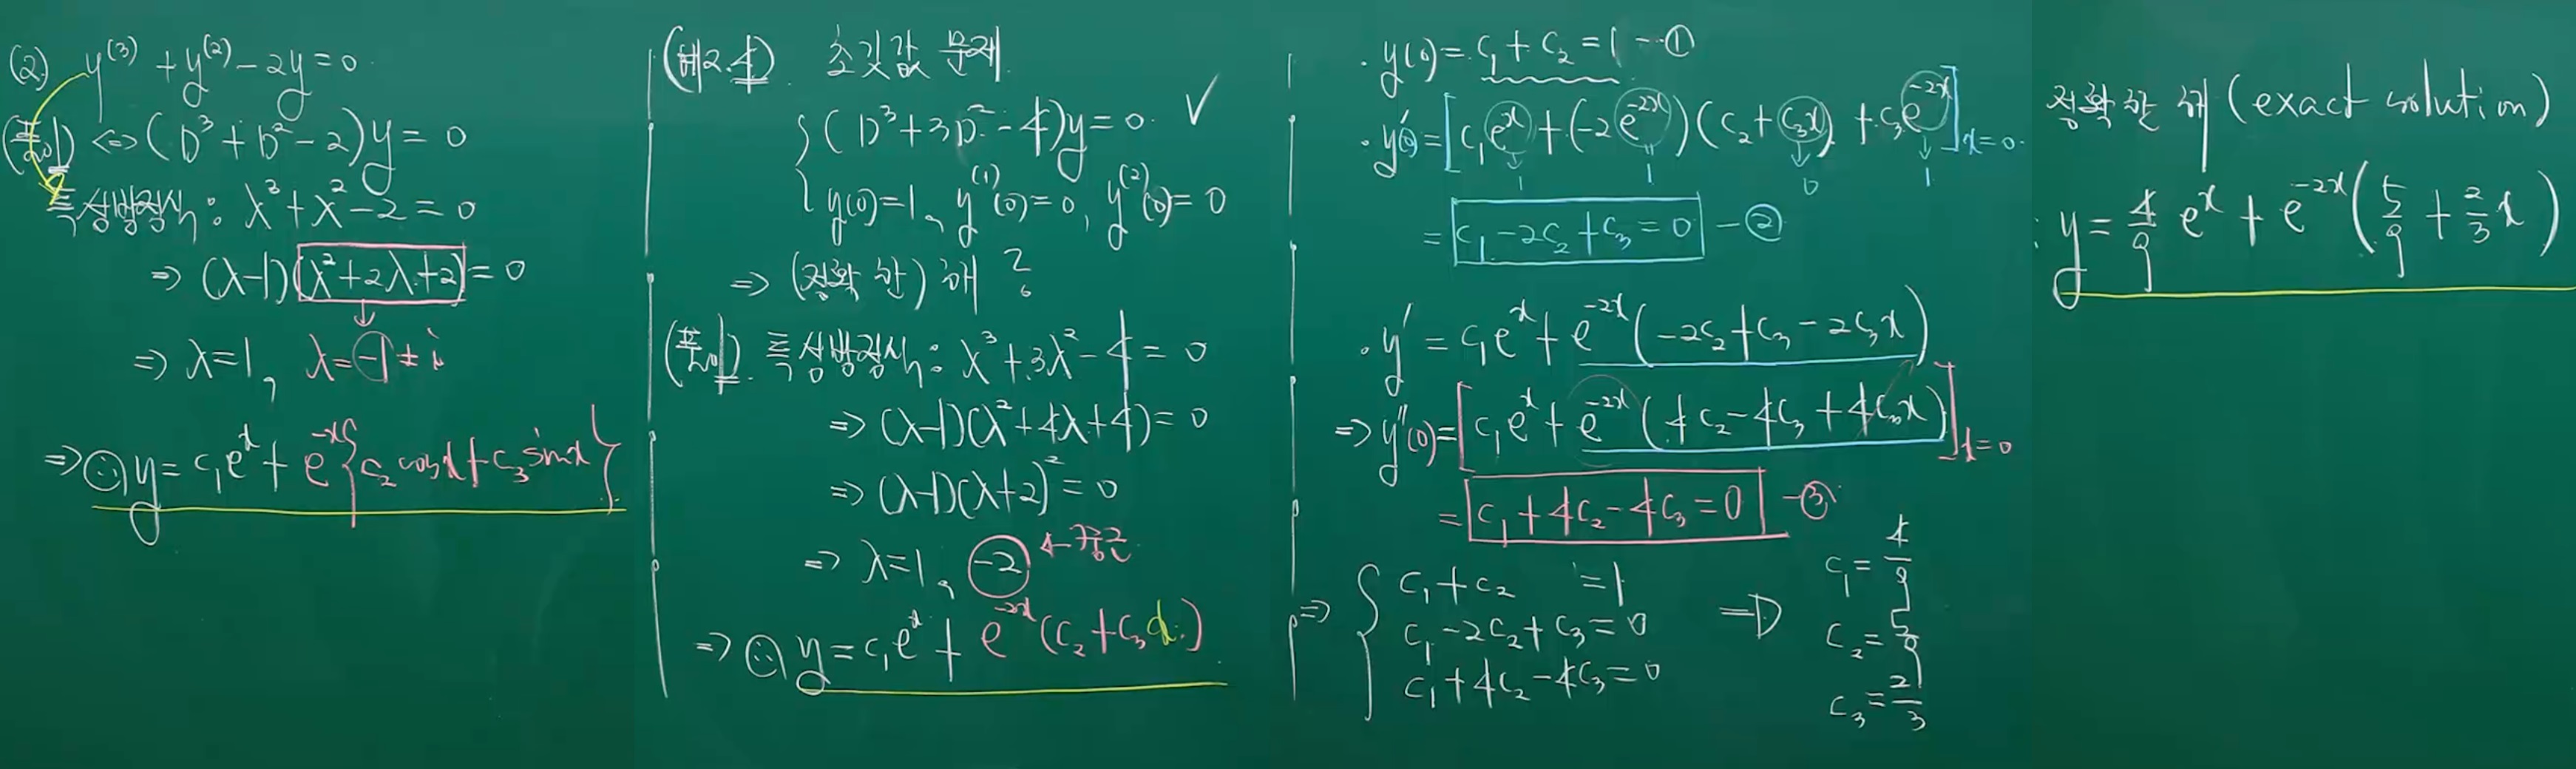 (2) y⁽³⁾ + y⁽²⁾ - 2y = 0
(풀이) ⇔ (D³ + D² - 2)y = 0
특성방정식: λ³ + λ² - 2 = 0
⇒ (λ-1)(λ² + 2λ + 2) = 0
↓
⇒ λ=1, λ = -1 ± i
⇒ ∴ y = c₁eˣ + e⁻ˣ{c₂cosx + c₃sinx}
(예2.4) 초깃값 문제
{ (D³ + 3D² - 4)y = 0 ✓
y(0) = 1, y⁽¹⁾(0) = 0, y⁽²⁾(0) = 0
⇒ (정확한) 해?
(풀이) 특성방정식: λ³ + 3λ² - 4 = 0
⇒ (λ-1)(λ² + 4λ + 4) = 0
⇒ (λ-1)(λ+2)² = 0
⇒ λ=1, -2 ← 중근
⇒ ∴ y = c₁eˣ + e⁻²ˣ(c₂ + c₃x)
· y(0) = c₁ + c₂ = 1 -- ①
· y'(0) = [c₁eˣ + (-2e⁻²ˣ)(c₂ + c₃x) + c₃e⁻²ˣ]x=0
↓ 1 ‖ 1 ↓ 0 ↓ 1
= c₁ - 2c₂ + c₃ = 0 - ②
· y' = c₁eˣ + e⁻²ˣ(-2c₂ + c₃ - 2c₃x)
⇒ y''(0) = [c₁eˣ + e⁻²ˣ(4c₂ - 4c₃ + 4c₃x)]x=0
= c₁ + 4c₂ - 4c₃ = 0 - ③
⇒ { c₁ + c₂ = 1
c₁ - 2c₂ + c₃ = 0
c₁ + 4c₂ - 4c₃ = 0
⇒ c₁ = 4/9
c₂ = 5/9
c₃ = 2/3
정확한 해 (exact solution)
: y = 4/9 eˣ + e⁻²ˣ(5/9 + 2/3 x)